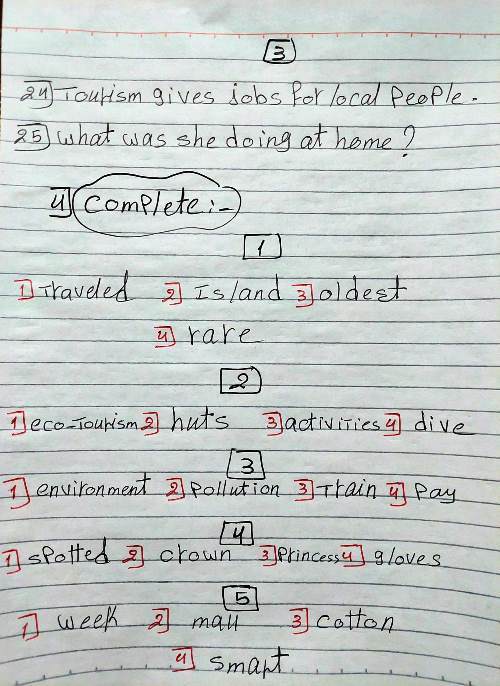 3
24 Tourism gives jobs for local people.
25 what was she doing at home?
4 complete:-
1
1 Traveled 2 Island 3 oldest
4 rare
2
1 eco-Tourism 2 huts 3 activities 4 dive
3
1 environment 2 pollution 3 Train 4 pay
4
1 spotted 2 crown 3 princess 4 gloves
5
1 week 2 mall 3 cotton
4 smart